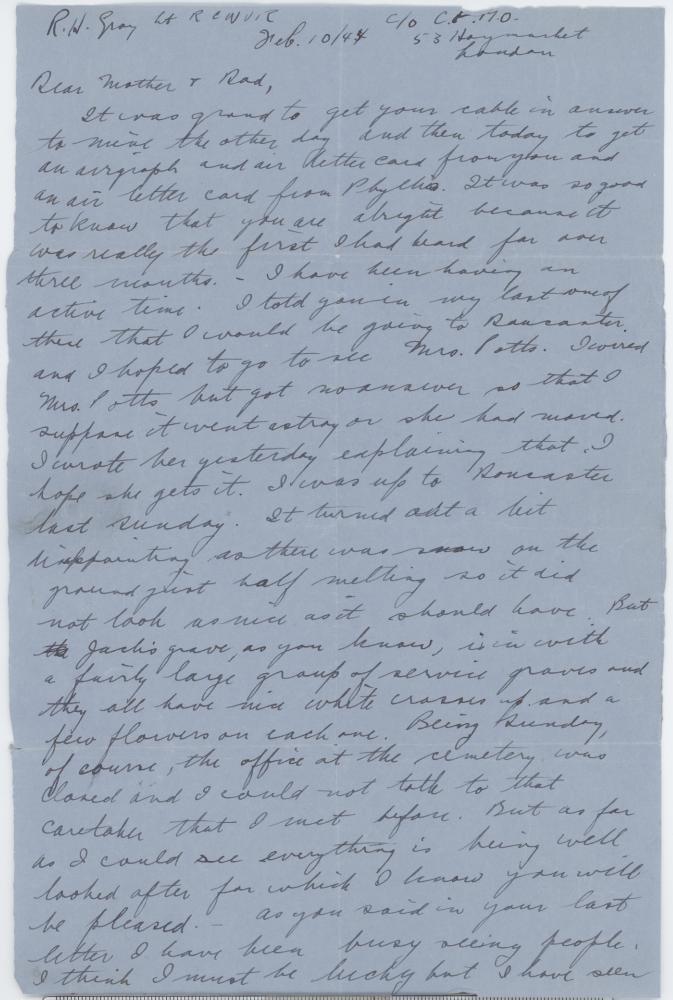 R.H. Gray Lt RCNVR
c/o C.F.M.O.
Feb. 10/44
53 Haymarket
London
Dear Mother & Dad,
It was grand to get your cable in answer
to mine the other day and then today to get
an airgraph and air letter card from you and
an air letter card from Phyllis. It was so good
to know that you are alright because it
was really the first I had heard for over
three months. - I have been having an
active time. I told you in my last one of
these that I would be going to Doncaster
and I hoped to go to see Mrs. Potts. I wired
Mrs. Potts but got no answer so that I
suppose it went astray or she had moved.
I wrote her yesterday explaining that. I
hope she gets it. I was up to Doncaster
last Sunday. It turned out a bit
disappointing as there was snow on the
ground just half melting so it did
not look as nice as it should have. But
Jack's grave, as you know, is in with
a fairly large group of service graves and
they all have nice white crosses up and a
few flowers on each one. Being Sunday,
of course, the office at the cemetery was
closed and I could not talk to that
caretaker that I met before. But as far
as I could see everything is being well
looked after for which I know you will
be pleased. - As you said in your last
letter I have been busy seeing people.
I think I must be lucky but I have seen